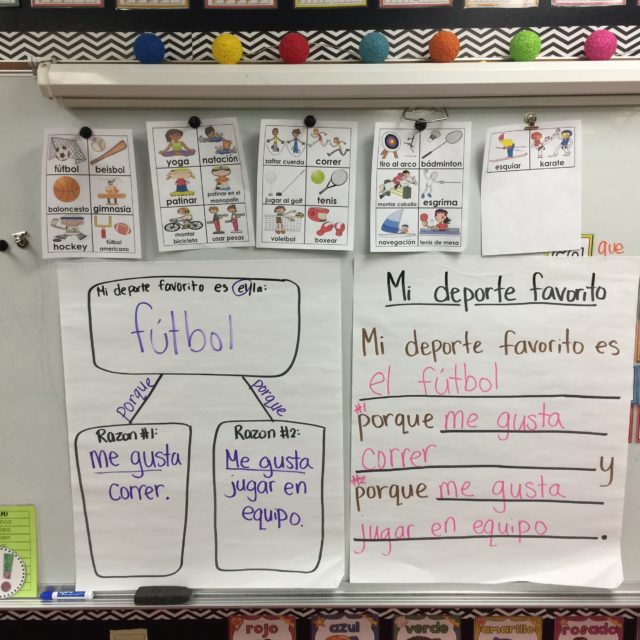 fútbol
beisbol
baloncesto
gimnasia
hockey
fútbol americano
yoga
natación
patinar
patinar en el monopatín
montar bicicleta
usar pesas
saltar cuerda
correr
jugar al golf
tenis
voleibol
boxear
tiro al arco
bádminton
montar caballo
esgrima
navegación
tenis de mesa
esquiar
karate
que
Mi deporte favorito es el/la:
fútbol
porque
porque
Razon #1:
me gusta
correr.
Razon #2:
Me gusta
jugar en
equipo.
Mi deporte favorito
Mi deporte favorito es
el fútbol
#1
porque me gusta
correr y
#2
porque me gusta
jugar en equipo.
rojo
azul
verde
amarillo
rosado